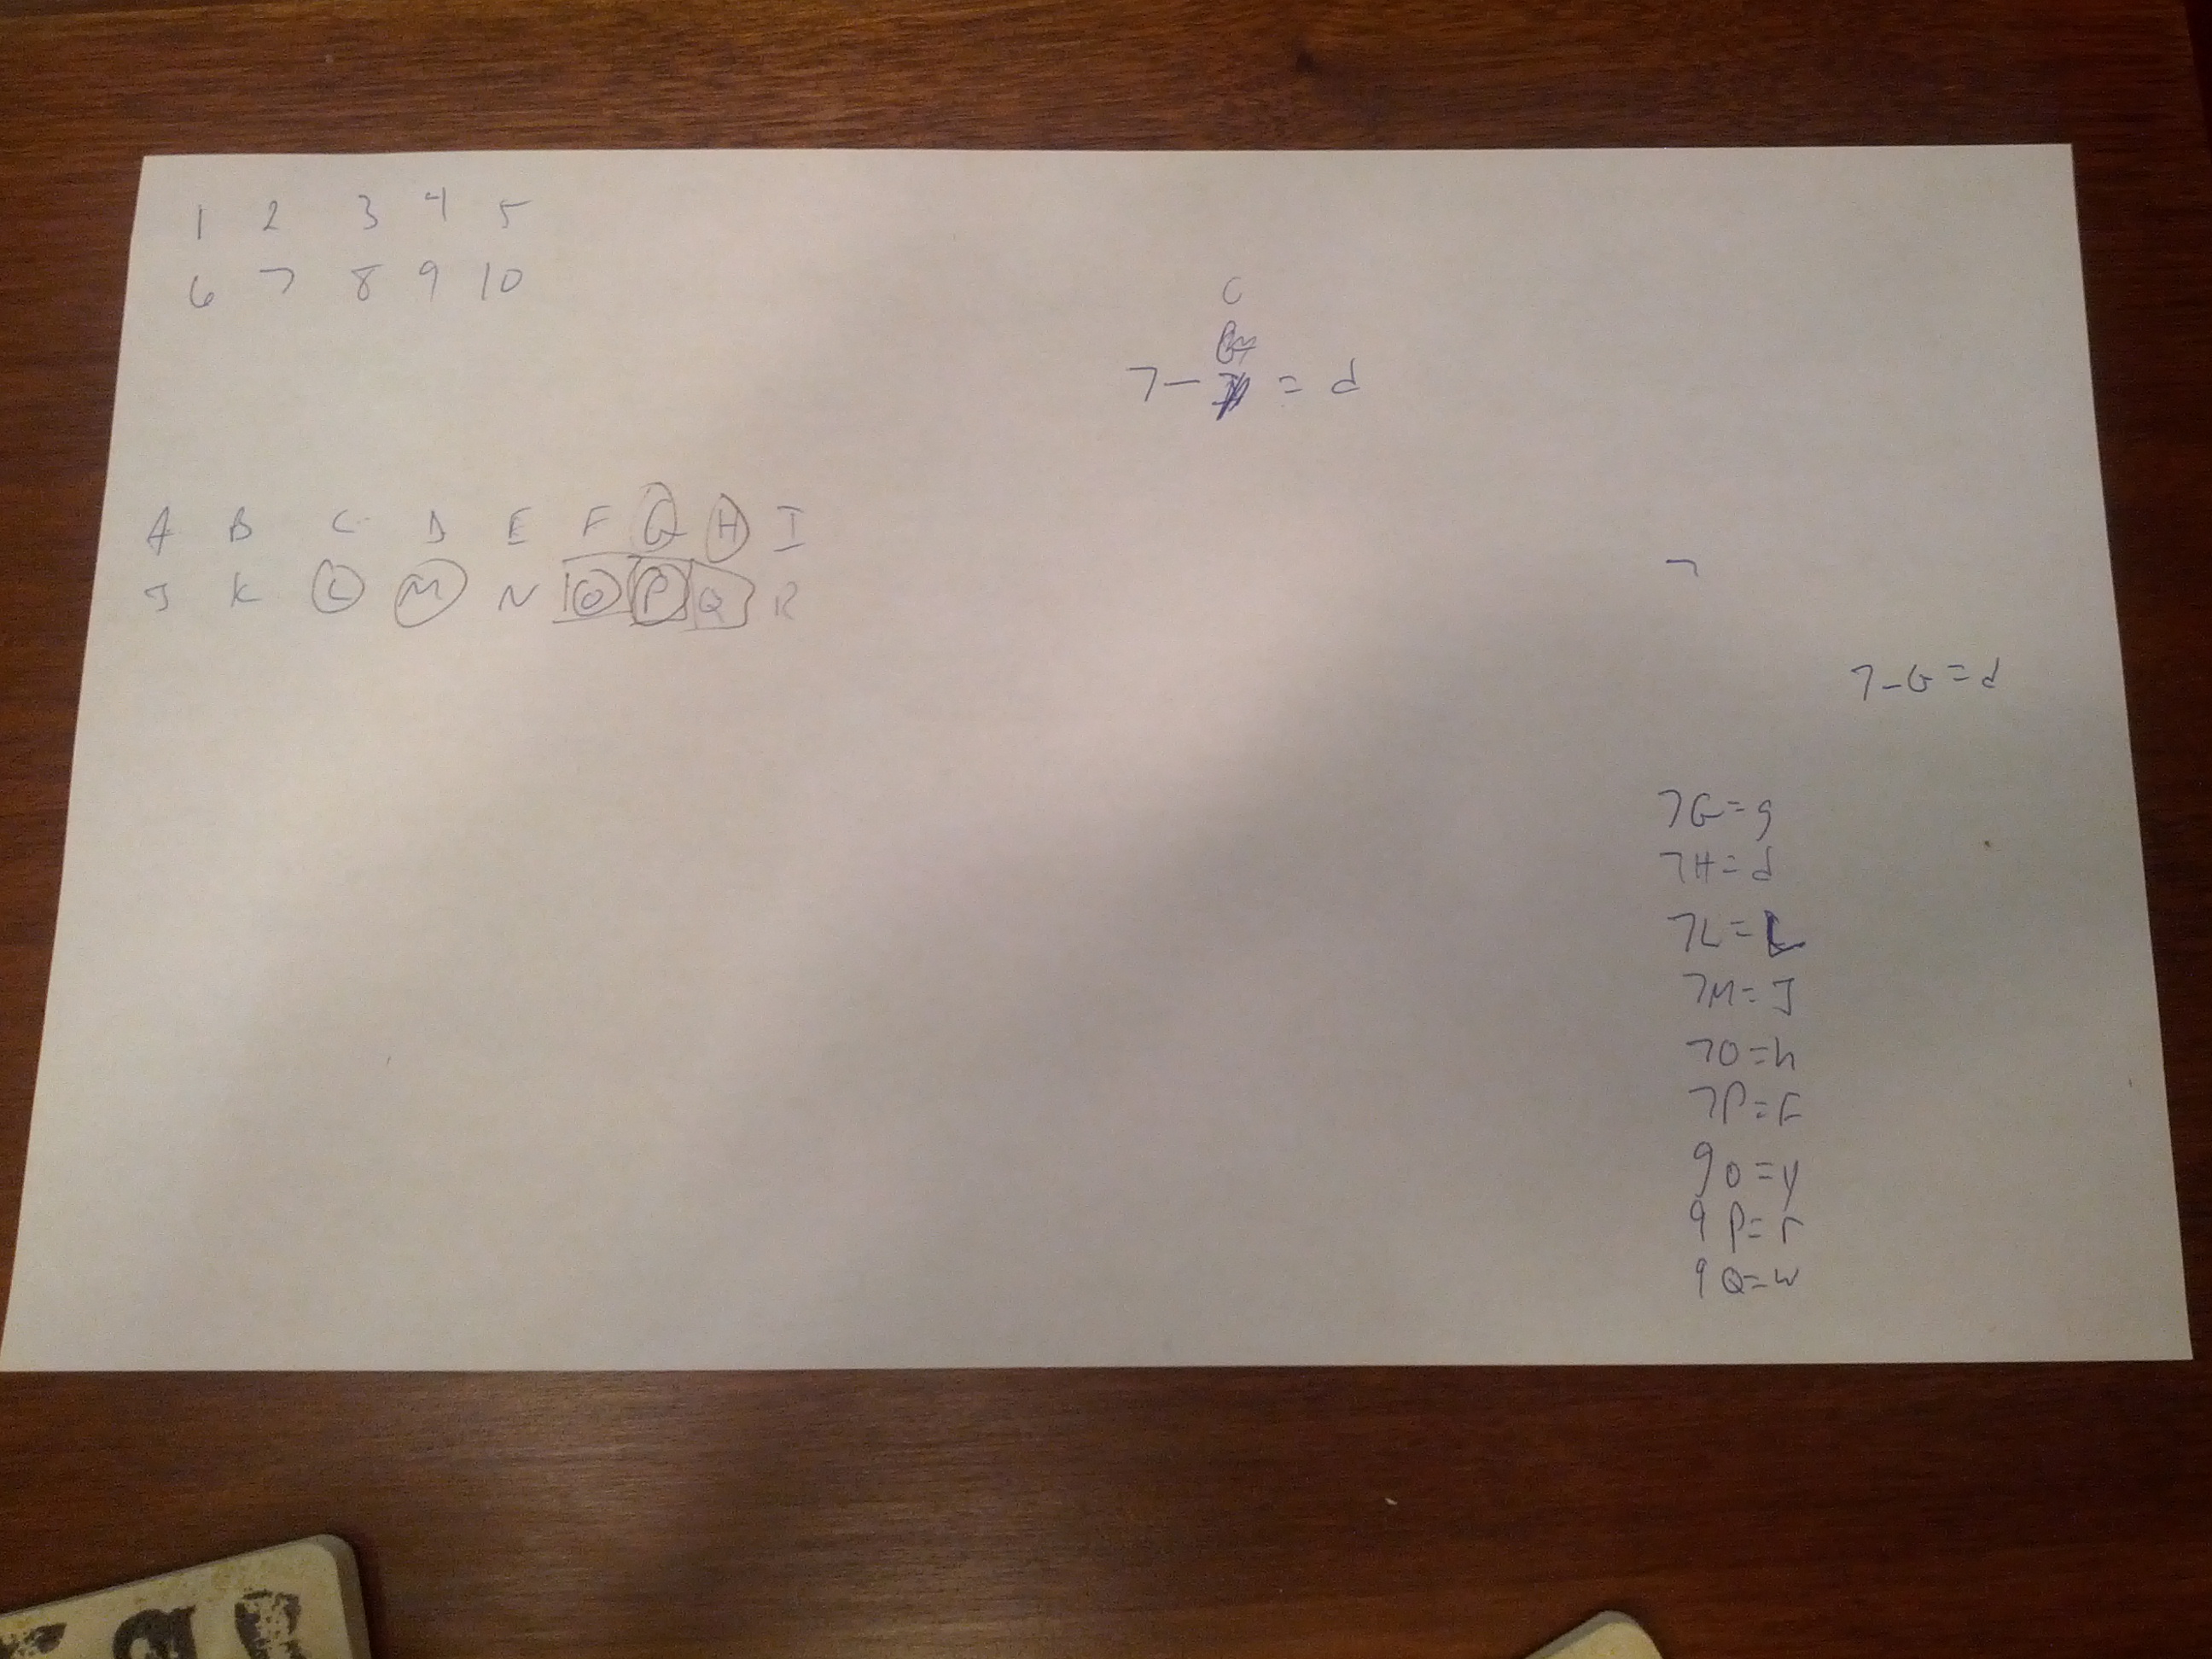 1 2 3 4 5
6 7 8 9 10
C
7- = d
A B C D E F G H I
J K L M N O P Q R
7
7-G=d
7G=g
7H=d
7L=L
7M=J
7O=h
7P=F
9O=y
9P=r
9Q=w